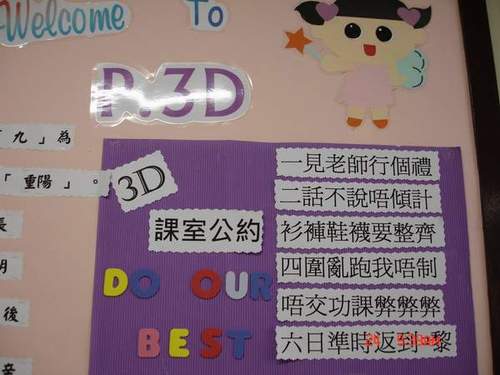 Welcome To
P.3D
「九」為
「重陽」。
長
明
後
3D
課室公約
DO OUR
BEST
一見老師行個禮
二話不說唔傾計
衫褲鞋襪要整齊
四圍亂跑我唔制
唔交功課弊弊弊
六日準時返到黎